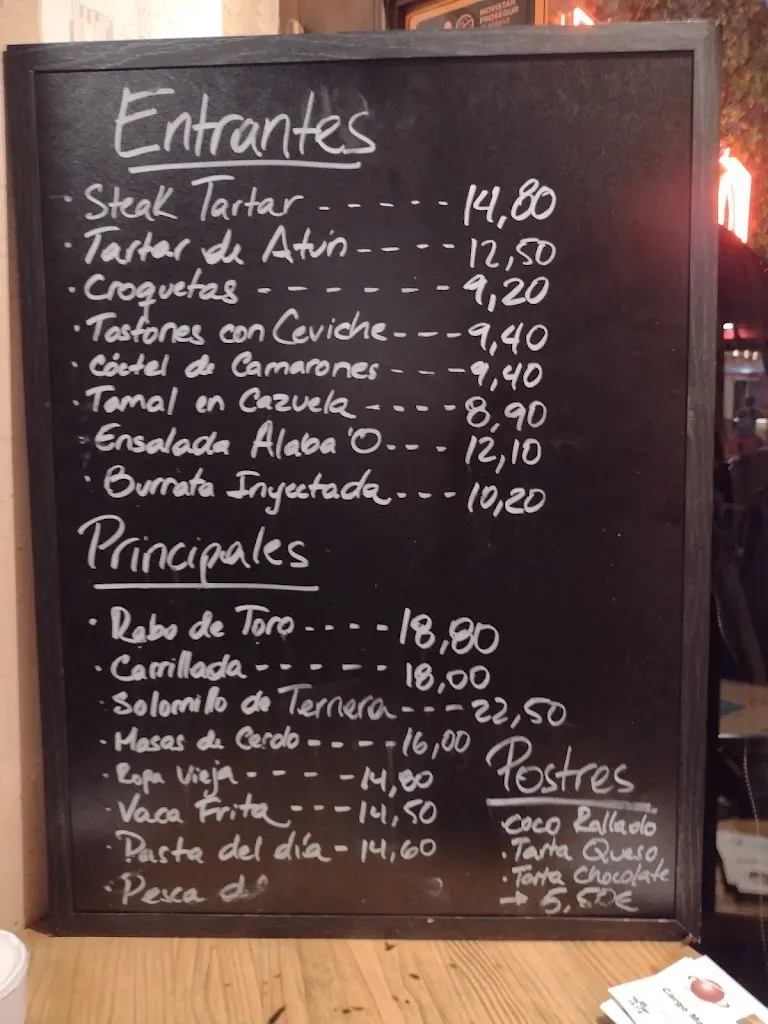 MOVISTAR
PROSEGUR
Entrantes
· Steak Tartar - - - - - 14,80
· Tartar de Atún - - - - 12,50
· Croquetas - - - - - - - 9,20
· Tostones con Ceviche - - - 9,40
· Cóctel de Camarones - - - 9,40
· Tamal en Cazuela - - - - 8,90
· Ensalada Alaba'O - - - 12,10
· Burrata Inyectada - - - 10,20
Principales
· Rabo de Toro - - - - 18,80
· Carrillada - - - - - 18,00
· Solomillo de Ternera - - - 22,50
· Masas de Cerdo - - - - 16,00
· Ropa Vieja - - - - 14,80
· Vaca Frita - - - 14,50
· Pasta del día - 14,60
· Pesca d
Postres
· Coco Rallado
· Tarta Queso
· Tarta Chocolate
→ 5,50€